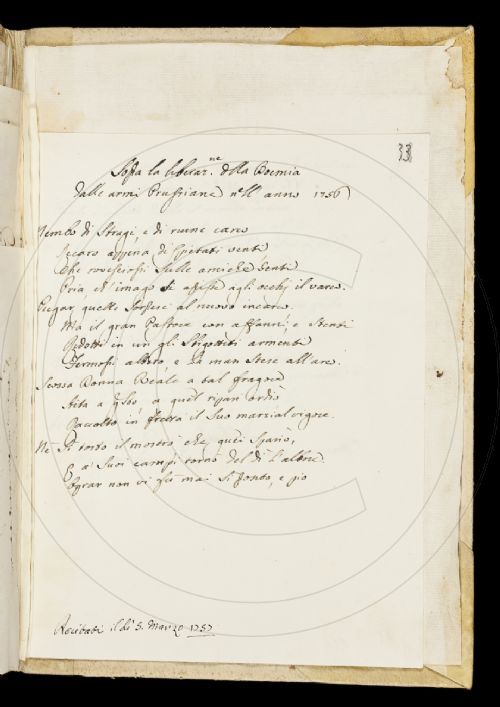 33
Sop.a la liberaz.ne della Boemia
dalle armi Prussiane nell' anno 1756
Nembo di Stragi, e di ruine carco
Recaro appena di spietati venti
Che rovesciossi sulle amiche genti
Ria ed imago di agli occhj il varco.
Piegar quelle al nuovo incarco
Ma il gran Pastore con affanni, e Stenti
Ridotti in un gli Sbigottiti armenti
Fermossi altero e la man Stese all' arco.
Scossa Donna Reale a tal fragore
Aita a a quel ripari ordio
Raccolto in fretta il Suo marzial vigore.
Ne Si tosto il mostro che quei Spario,
E a' Suoi campi tornò del dì l'albore.
Oprar non vi fu mai Si pronto, e pio
Recitati il dì 5. Marzo 1757